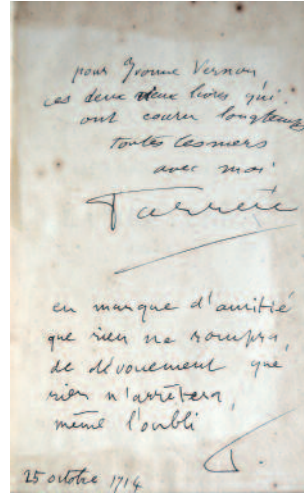 pour Yvonne Vernon
ces deux vieux livres qui
ont couru longtemps
toutes les mers
avec moi
Farrère
en marque d'amitié
que rien ne rompra,
de dévouement que
rien n'arrêtera,
même l'oubli
F.
25 octobre 1914